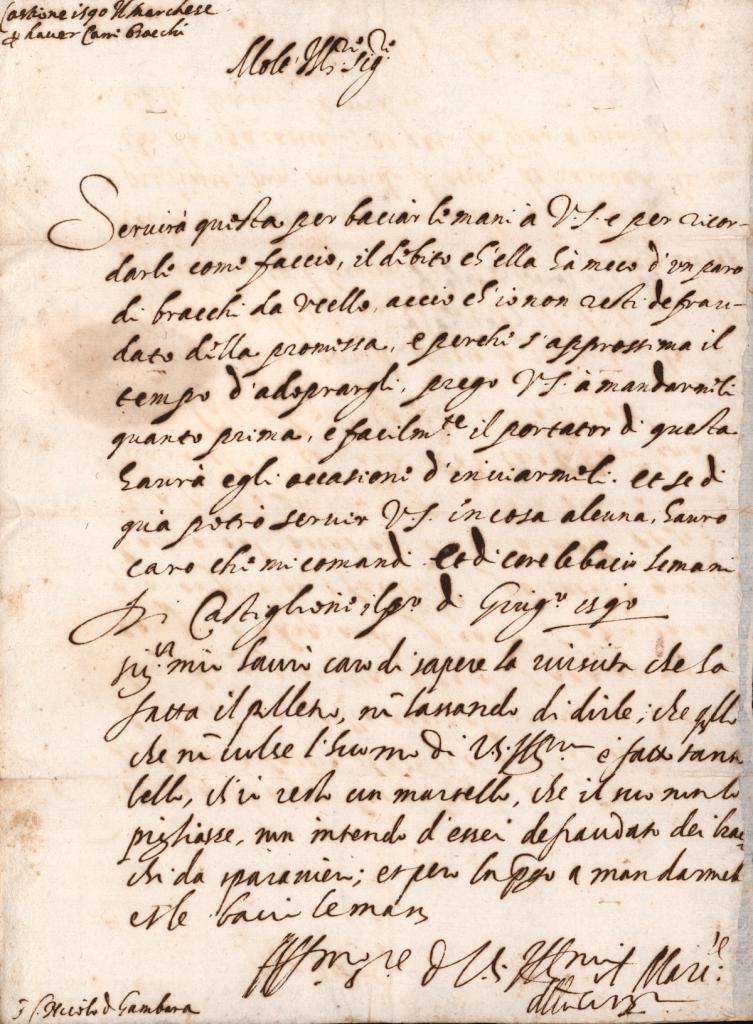 Castione 1590 Il Marchese
p haver Cani Bracchi
Molt' Ill.re Sig.re
Servirà questa per baciar le mani à V.S. e per ricor-
darle come faccio, il debito ch'ella hà meco d'un paro
di bracchi da Vcello, acciò ch'io non resti defrau-
dato della promessa, e perche s'approssima il
tempo d'adoprargli, prego VS. à mandarmeli
quanto prima, e facilm.te il portator di questa
haurà egli occasione d'inviarmeli. et se di
quà potrò servir VS. in cosa alcuna, hauro
caro che mi comandi. et di core le bacio le mani
Di Castiglione il p.o di Giug.o 1590
sig.r mio hauri caro di sapere la riuscita che ha
fatta il polletro, nō lassando di dirle; che qllo
che nō volse l'huomo di V.S. Ill. è fatto tanto
bello, ch'io resto un martello, che il suo non lo
pigliasse, non intendo d'esser defraudato dei brac-
chi da sparavieri; et però la pgo a mandarmeli
et le bacio le mani
di V.S. Ill. il Mar.se
S. C. Nicolo d Gambara